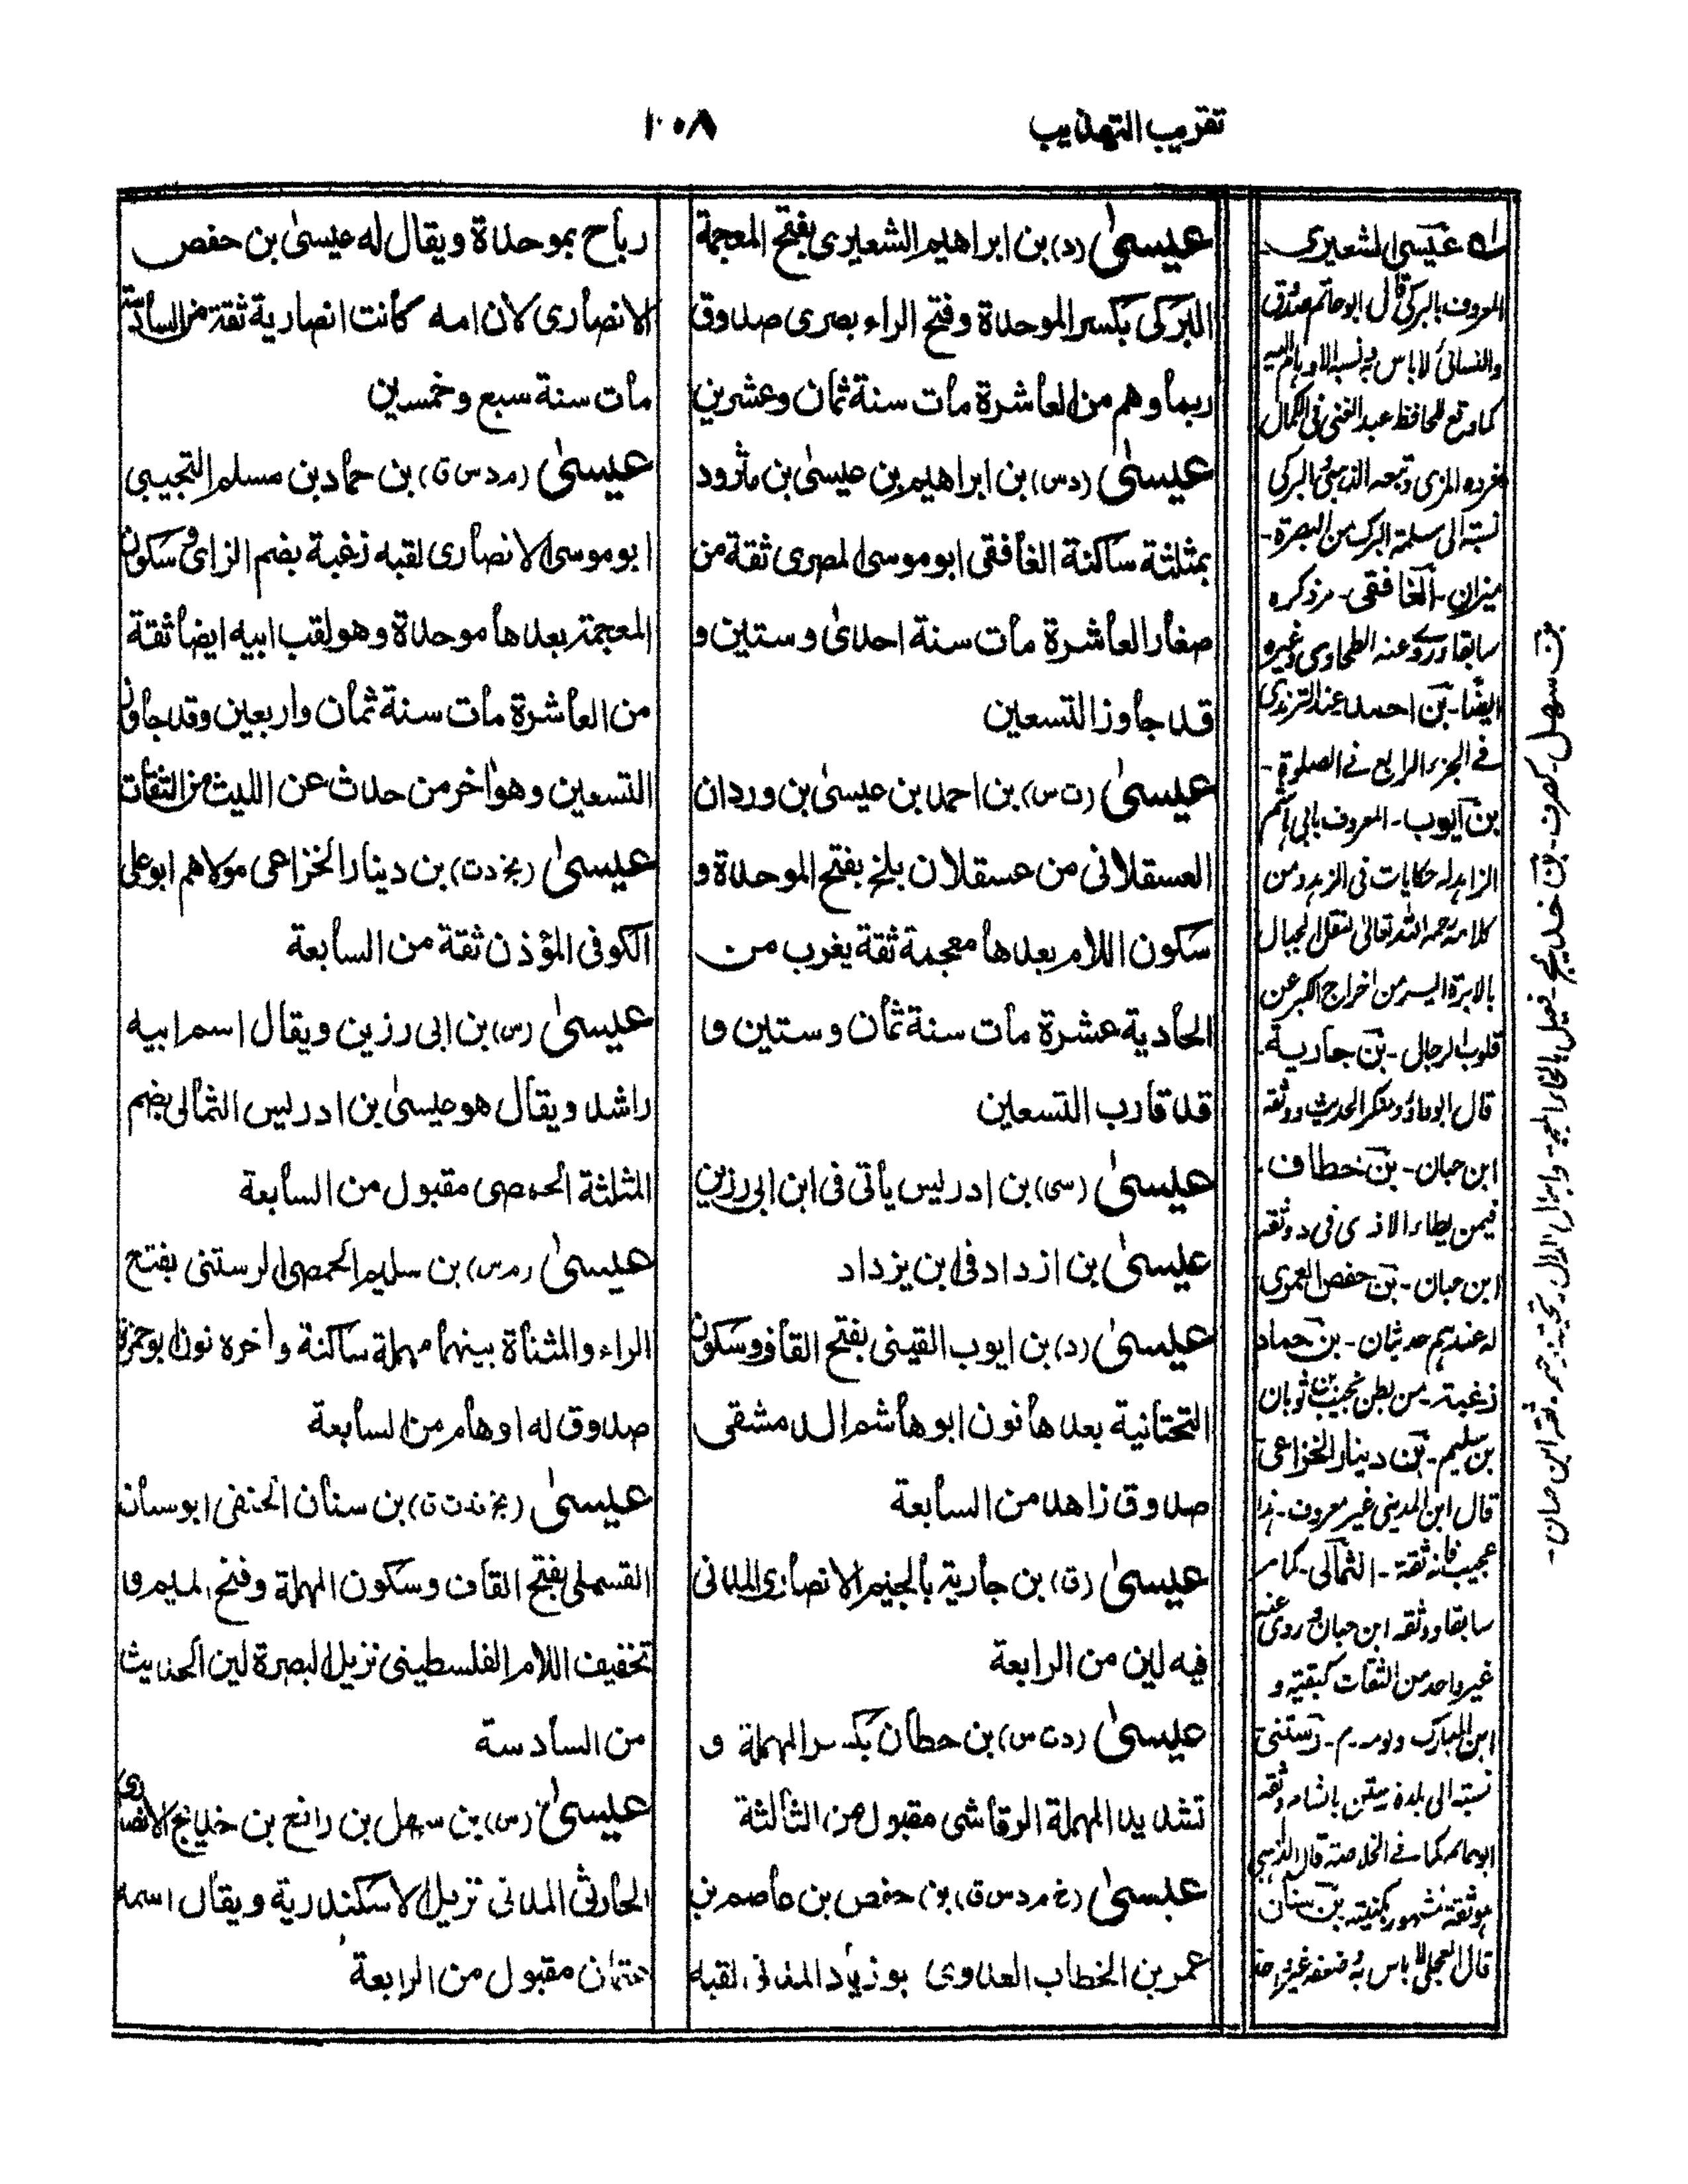 تقريب التهذيب
١٠٨
عيسىٰ (د) بن ابراهيم الشعيرى بفتح المعجمة
البركى بكسر الموحدة وفتح الراء بصرى صدوق
ربما وهم من العاشرة مات سنة ثمان وعشرين
عيسىٰ (دس) بن ابراهيم بن عيسىٰ بن مثرود
بمثلثة ساكنة الغافقى ابوموسى المصرى ثقة من
صغار العاشرة مات سنة احدىٰ وستين و
قد جاوز التسعين
عيسىٰ (ت س) بن احمد بن عيسىٰ بن وردان
العسقلانى من عسقلان بلخ بفتح الموحدة و
سكون اللام بعدها معجمة ثقة يغرب من
الحادية عشرة مات سنة ثمان وستين و
قد قارب التسعين
عيسىٰ (سى) بن ادريس يأتى فى ابن ابى رزين
عيسىٰ بن ازداد فى ابن يزداد
عيسىٰ (د) بن ايوب القينى بفتح القاف وسكون
التحتانية بعدها نون ابو هاشم الدمشقى
صدوق زاهد من السابعة
عيسىٰ (ق) بن جارية بالجيم الانصارى المدنى
فيه لين من الرابعة
عيسىٰ (دت س) بن حطان بكسر المهملة و
تشديد المهملة الرقاشى مقبول من الثالثة
عيسىٰ (خ م د س ق) بن حفص بن عاصم بن
عمر بن الخطاب العدوى بوزياد المدنى لقبه
رباح بموحدة ويقال له عيسىٰ بن حفص
الانصارى لان امه كانت انصارية ثقة من السادسة
مات سنة سبع وخمسين
عيسىٰ (م د س ق) بن حماد بن مسلم التجيبى
ابوموسى الانصارى لقبه زغبة بضم الزاى وسكون
المعجمة بعدها موحدة وهو لقب ابيه ايضا ثقة
من العاشرة مات سنة ثمان واربعين وقد جاوز
التسعين وهو اخر من حدث عن الليث من الثقات
عيسىٰ (بخ دت) بن دينار الخزاعى مولاهم ابوعلى
الكوفى المؤذن ثقة من السابعة
عيسىٰ (س) بن ابى رزين ويقال اسم ابيه
راشد ويقال هو عيسىٰ بن ادريس الثمالى بضم
المثلثة الحمصى مقبول من السابعة
عيسىٰ (مس) بن سليم الحمصى الرستنى بفتح
الراء والمثناة بينهما مهملة ساكنة واخره نون ابوحمزة
صدوق له اوهام من السابعة
عيسىٰ (بخ قدت ق) بن سنان الحنفى ابوسنان
القسملى بفتح القاف وسكون المهملة وفتح الميم و
تخفيف اللام الفلسطينى نزيل البصرة لين الحديث
من السادسة
عيسىٰ (س) بن سهل بن رافع بن خديج الانصارى
الحارثى المدنى نزيل الاسكندرية ويقال اسمه
عثمان مقبول من الرابعة
له عيسى الشعيرى
المعروف بالبركى قال ابوحاتم صدوق
والنسائى لا باس به
كما وقع للحافظ عبد الغنى فى الكمال
المزى وتبعه الذهبى البركى
نسبة الى سكة البرك من البصرة -
ميزان - الغافقى - مر ذكره
سابقا وروى عنه الطحاوى وغيره
ايضا - بن احمد عند الترمذى
فى الجزء الرابع فى الصلوة -
بن ايوب - المعروف بابى هاشم
الزاهد له حكايات فى الزهد ومن
كلامه رحمه الله تعالى لنقل الجبال
بالابرة ايسر من اخراج الكبر عن
قلوب الرجال - بن جارية -
قال ابو داؤد منكر الحديث ووثقه
ابن حبان - بن خطاف -
ابن حبان - بن حفص العمرى
له عندهم حديثان - بن حماد
زغبة - من بطن تجيب بن ثوبان
بن سليم - بن دينار الخزاعى
قال ابن المدينى غير معروف - هذا
عجيب فانه ثقة - الثمالى - كما مر
سابقا ووثقه ابن حبان وروى عنه
غير واحد من الثقات كبقية و
ابن المبارك - رستنى
نسبة الى بلدة
كما فى الخلاصة قال الذهبى
هو ثقة مشهور بكنيته بن سنان
قال العجلى لا باس به وضعفه غير واحد
بن سهل - بن خديج - وثقه ابن حبان -